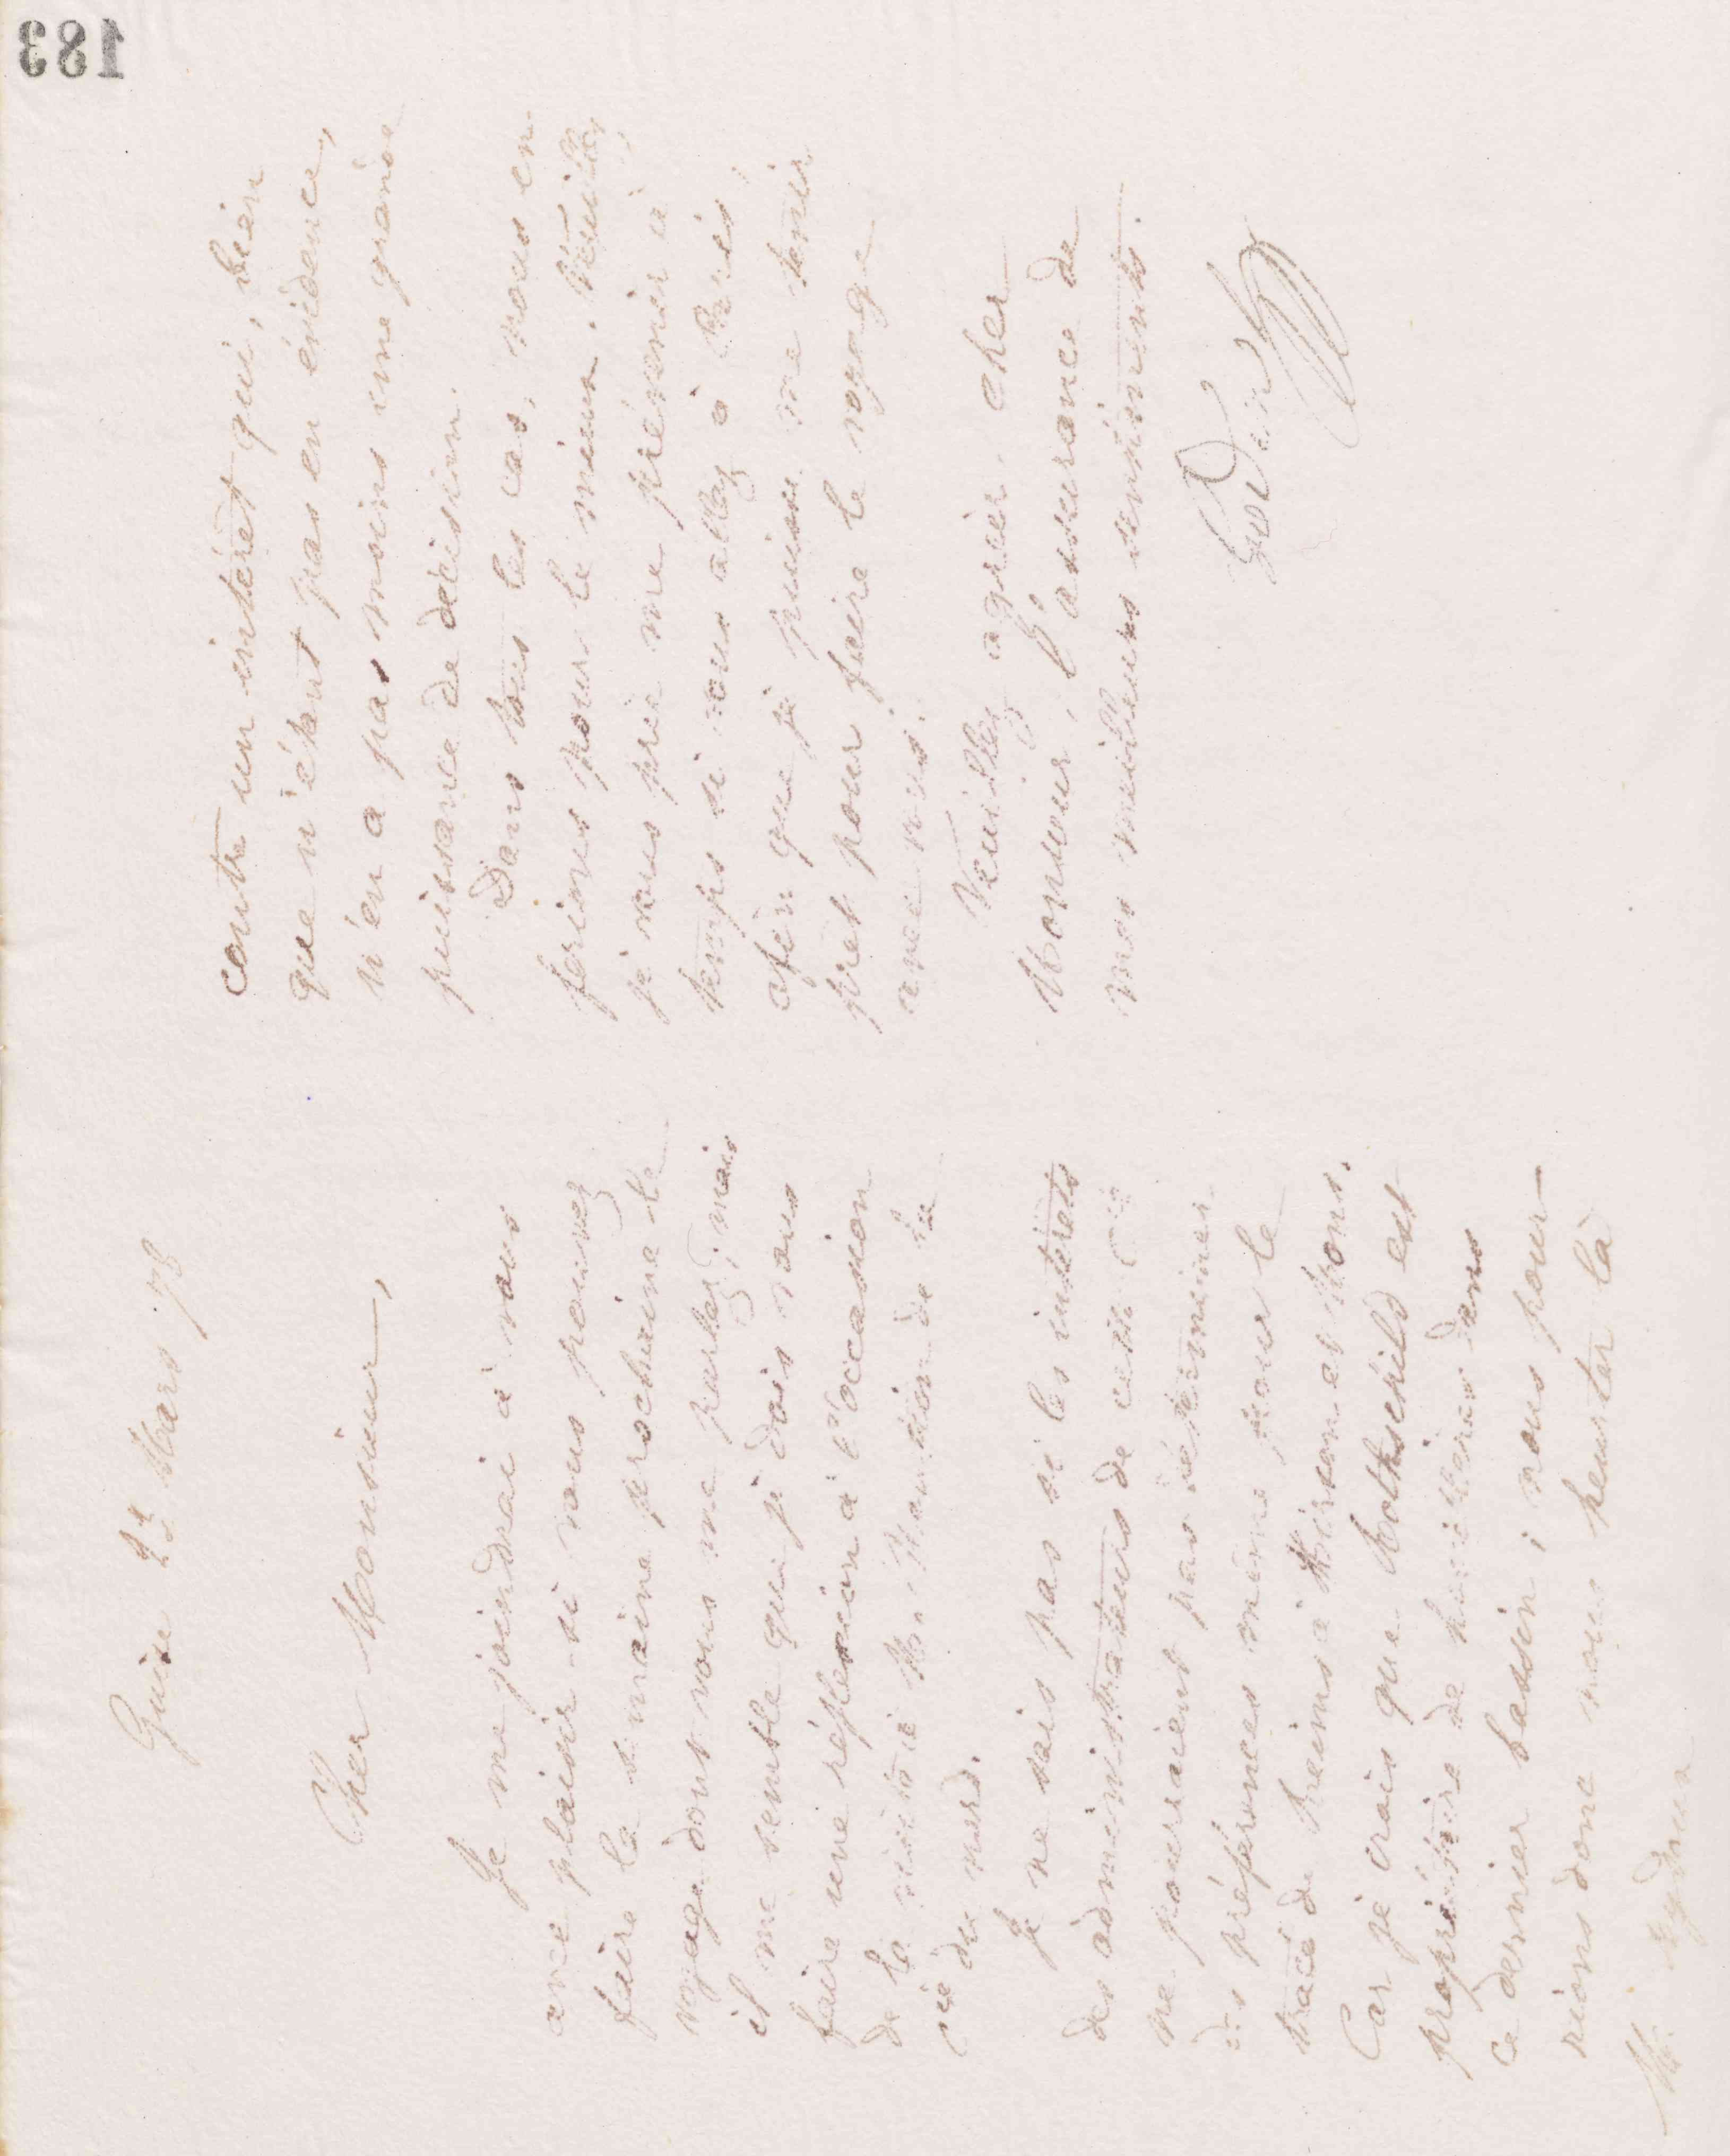 183
Guise 23 Mars 78
Cher Monsieur,
Je me joindrai à vous
avec plaisir si vous pouvez
faire la semaine prochaine le
voyage dont vous me parlez; mais
il me semble que je dois vous
faire une réflexion à l'occasion
de la visite à Mr. de la
Cie du nord.
Je ne sais pas si les intérets
des administrateurs de cette Cie
ne pourraient pas déterminer
des préférences même pour le
tracé de Reims à Hirson et Mons.
Car je crois que Rothschild est
propriétaire de houillères dans
ce dernier bassin; nous pour-
rions donc nous heurter là
contre un intérêt qui, bien
que n'étant pas en évidence,
n'en a pas moins une grande
puissance de décision.
Dans tous les cas, nous en
ferions pour le mieux. Veuillez,
je vous prie me prévenir à
temps si vous allez à Paris,
afin que je puisse me tenir
prêt pour faire le voyage
avec vous.
Veuillez agréer, cher
Monsieur, l'assurance de
mes meilleurs sentiments.
Godin